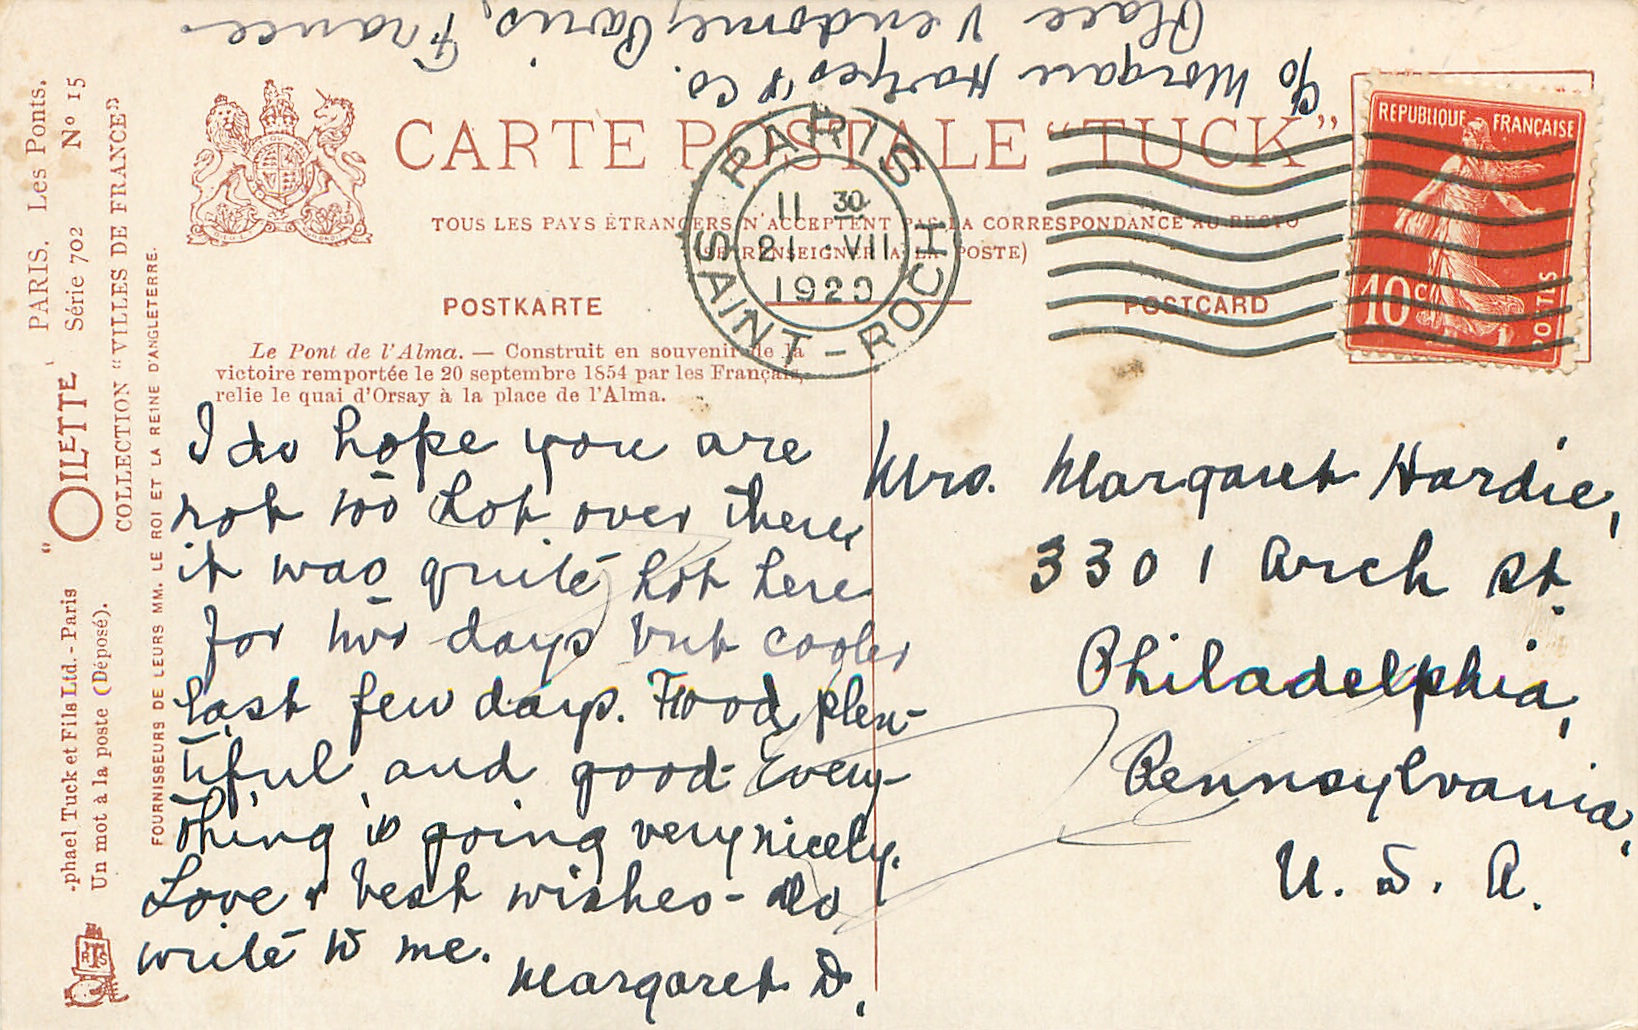 c/o Morgan Harjes & Co.
Place Vendome, Paris, France
CARTE POSTALE "TUCK"
TOUS LES PAYS ÉTRANGERS N'ACCEPTENT PAS LA CORRESPONDANCE AU RECTO
(SE RENSEIGNER A LA POSTE)
POSTKARTE
POSTCARD
PARIS
11 30
21 · VII
1920
SAINT-ROCH
REPUBLIQUE FRANÇAISE
10c
POSTES
Le Pont de l'Alma. — Construit en souvenir de la
victoire remportée le 20 septembre 1854 par les Français,
relie le quai d'Orsay à la place de l'Alma.
I do hope you are
not too hot over there,
it was quite hot here
for two days but cooler
last few days. Food plen-
tiful and good. Every-
thing is going very nicely.
Love & best wishes - do
write to me.
Margaret D.
Mrs. Margaret Hardie,
3301 Arch St.
Philadelphia,
Pennsylvania,
U. S. A.
PARIS. Les Ponts.
"OILETTE" Série 702 No 15
COLLECTION "VILLES DE FRANCE"
-phael Tuck et Fils Ltd. - Paris
Un mot à la poste (Déposé).
FOURNISSEURS DE LEURS MM. LE ROI ET LA REINE D'ANGLETERRE.